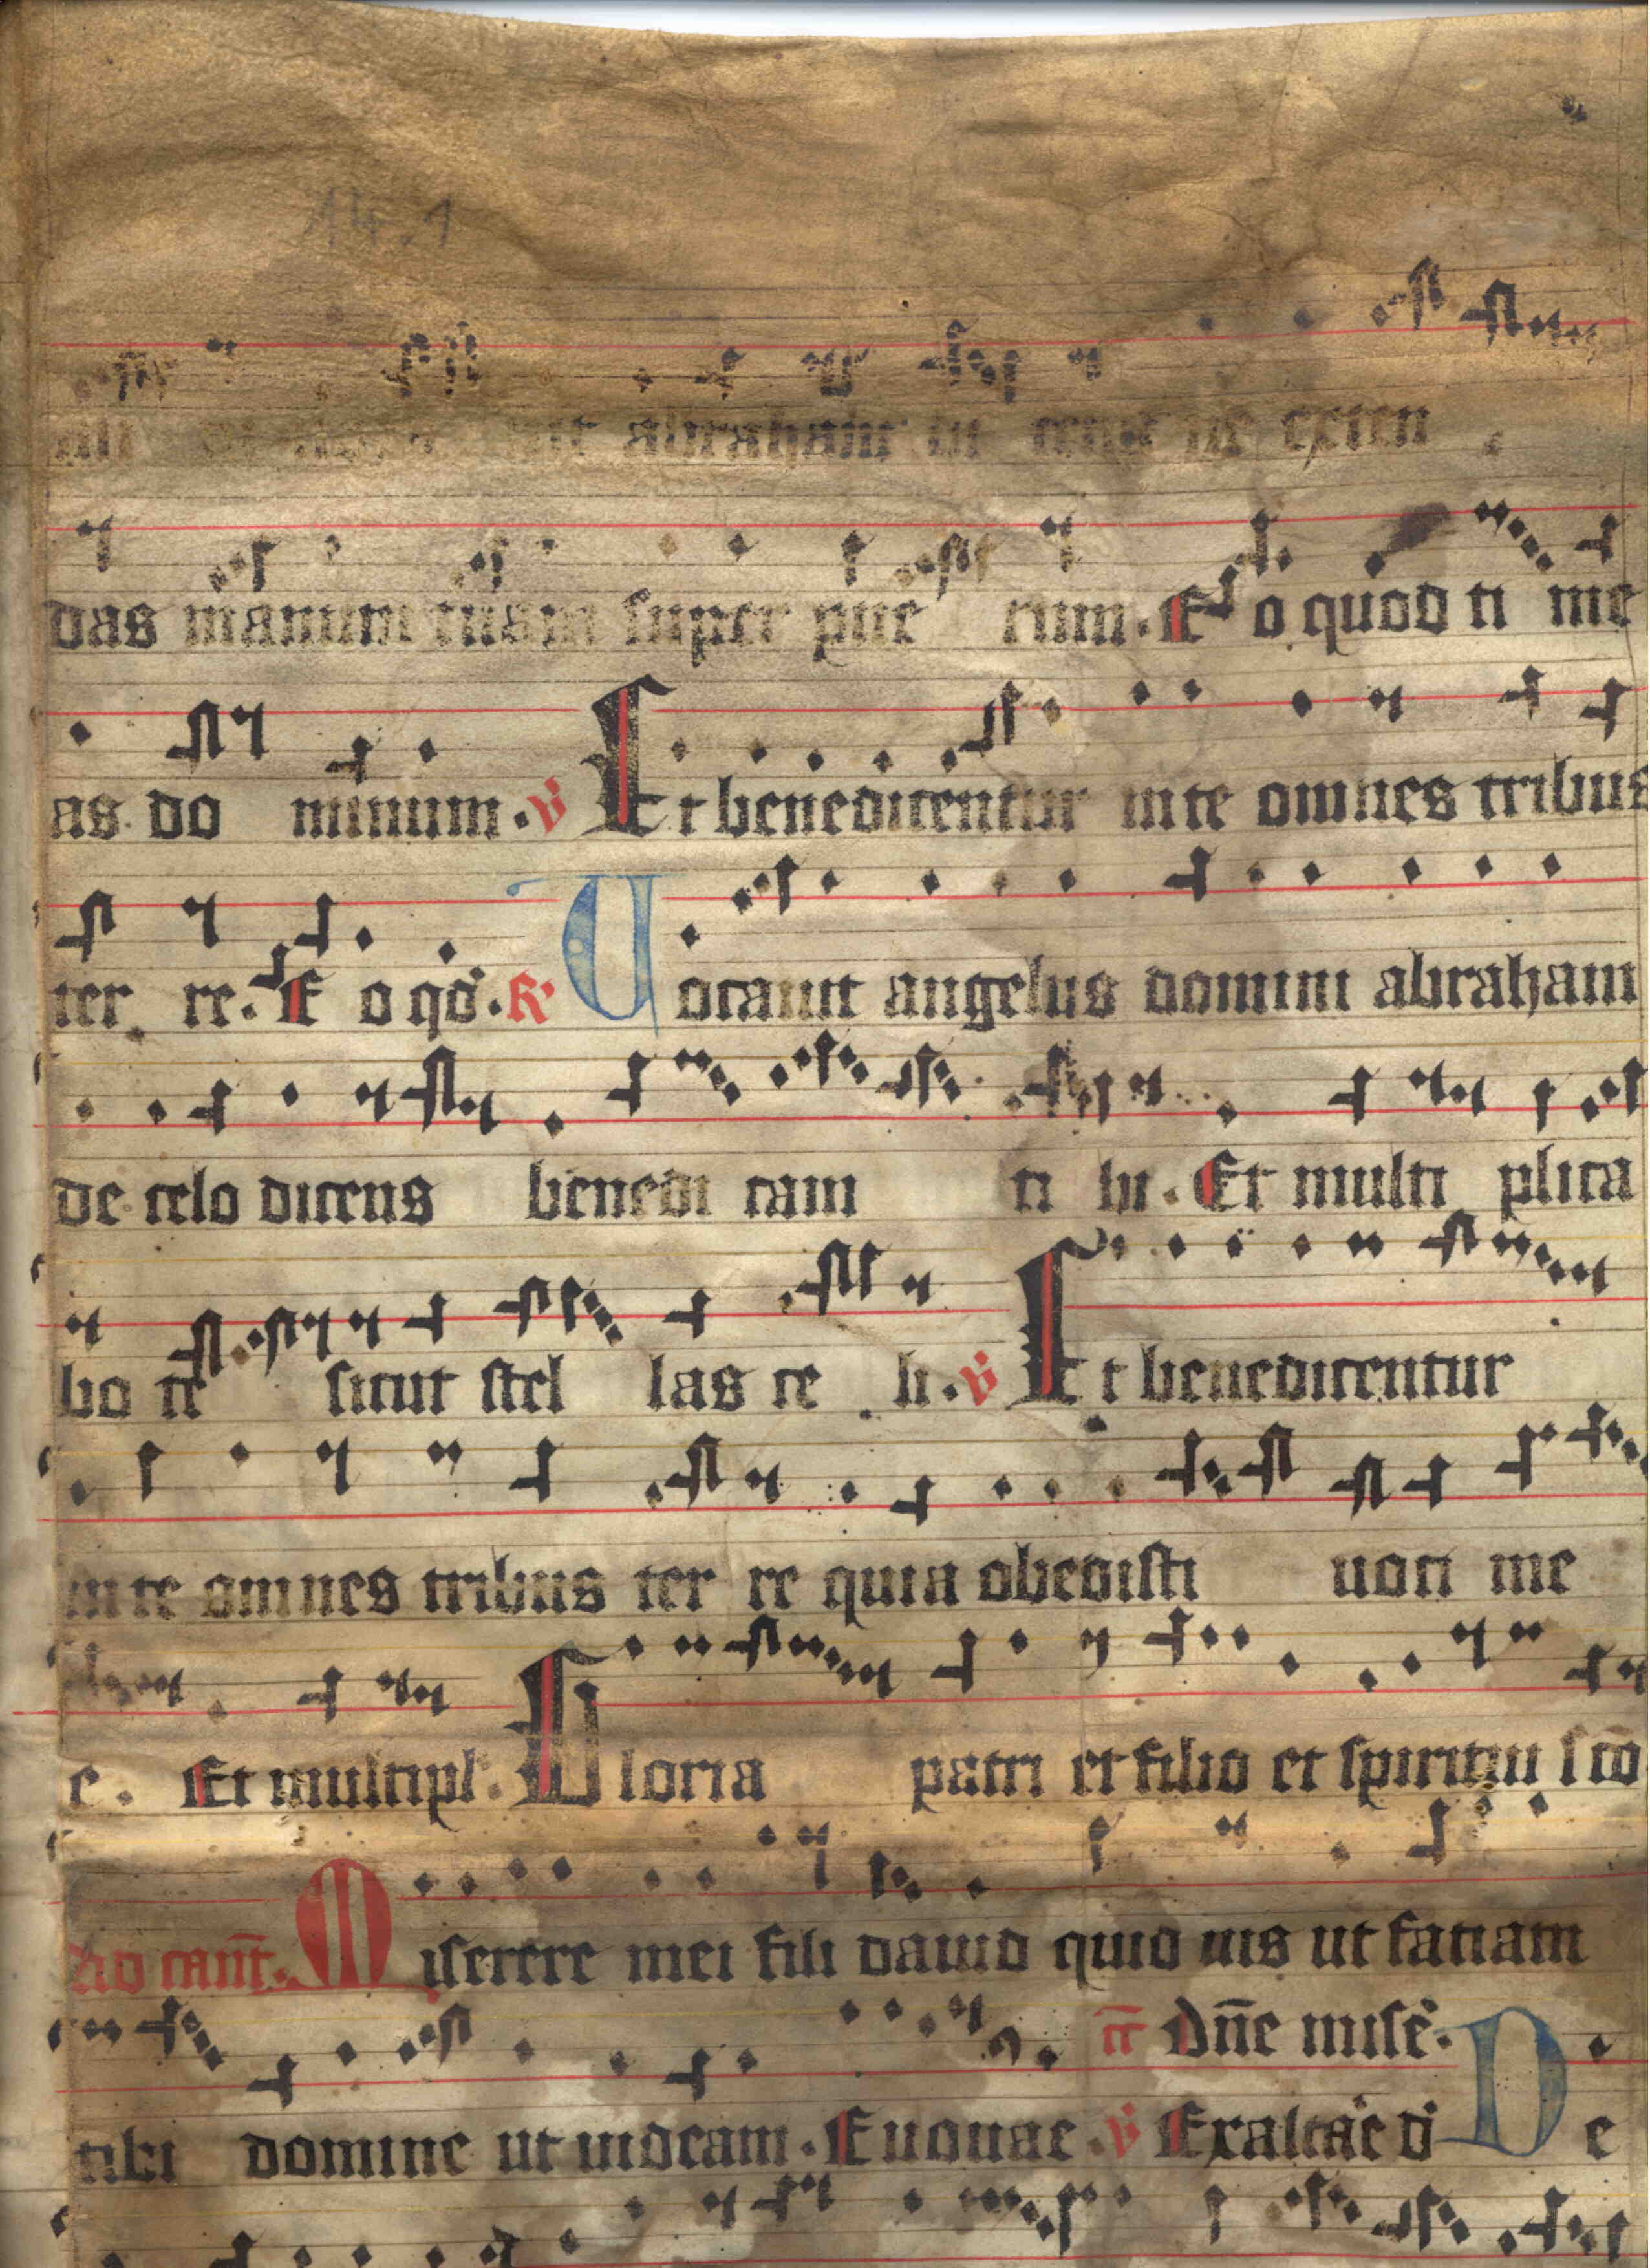 14.1
abraham in exten
das manum tuam super pue rum. E o quod ti me
as do minum. v Et benedicentur in te omnes tribus
ter re. E o qd. R Vocauit angelus domini abraham
de celo dicens benedi cam ti bi. Et multi plica
bo te sicut stel las ce li. v Et benedicentur
in te omnes tribus ter re quia obedisti uoci me
e. Et multipl. Gloria patri et filio et spiritui sco
Ad cant. Miserere mei fili dauid quid uis ut faciam
Dne mise.
tibi domine ut uideam. Euouae. v Exaltare d De